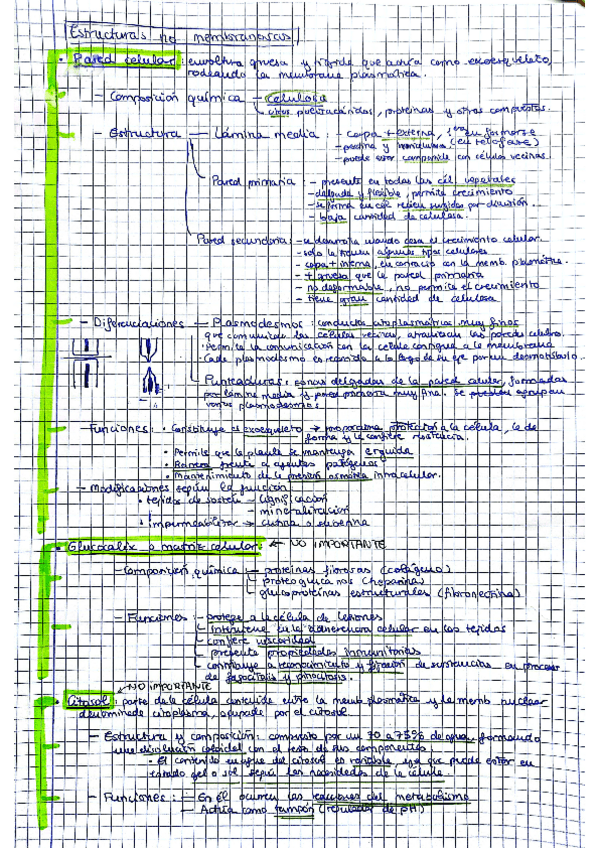 Estructuras no membranosas
• Pared celular: envoltura gruesa y rígida que actúa como exoesqueleto,
rodeando la membrana plasmática.
- Composición química - celulosa
polisacáridos, proteínas y otros compuestos.
- Estructura - Lámina media: - capa + externa, en formarse
(en telofase)
- pectina y
- puede estar compartida con células vecinas.
Pared primaria: - presente en todas las cél. vegetales
- delgada y flexible, permite crecimiento
- se forma en cél. recién surgidas por división.
- baja cantidad de celulosa.
Pared secundaria: - se desarrolla cuando cesa el crecimiento celular.
- solo la tienen algunos tipos celulares
- capa + interna, en contacto con la memb. plasmática.
- + gruesa que la pared primaria
- no deformable, no permite el crecimiento
- tiene gran cantidad de celulosa
- Diferenciaciones - Plasmodesmos: conductos citoplasmáticos muy finos
que comunican las células vecinas, atraviesan las paredes celulares.
Permiten la comunicación con la célula contigua a la membrana
Cada plasmodesmo es recorrido a lo largo de su eje por un desmotúbulo.
Punteaduras: zonas delgadas de la pared celular, formadas
por lámina media y pared primaria muy fina. Se pueden agrupar
varios plasmodesmos
- Funciones: • Constituye el exoesqueleto → proporciona protección a la célula, le da
forma y le confiere resistencia.
• Permite que la planta se mantenga erguida
• Barrera frente a agentes patógenos
• Mantenimiento de la presión osmótica intracelular.
- Modificaciones según la función
• tejidos de sostén - lignificación
- mineralización
• impermeabilizar → cutina o suberina
• Glucocálix o matriz celular: ← NO IMPORTANTE
- Composición química: - proteínas fibrosas (colágeno)
- proteoglucanos (heparina)
- glucoproteínas estructurales (fibronectina)
- Funciones: - protege a la célula de lesiones
- interviene en la adherencia celular en los tejidos
- confiere viscosidad
- presenta propiedades inmunitarias
- contribuye a reconocimiento y fijación de sustancias en procesos
de fagocitosis y pinocitosis.
NO IMPORTANTE
• Citosol: parte de la célula contenida entre la memb. plasmática y la memb. nuclear
denominada citoplasma, ocupada por el citosol
- Estructura y composición: compuesto por un 70 a 75% de agua, formando
una disolución coloidal con el resto de sus componentes
• El contenido en agua del citosol es variable, ya que puede estar en
estado gel o sol según las necesidades de la célula.
- Funciones: - En él ocurren las reacciones del metabolismo
- Actúa como tampón (regulador de pH)